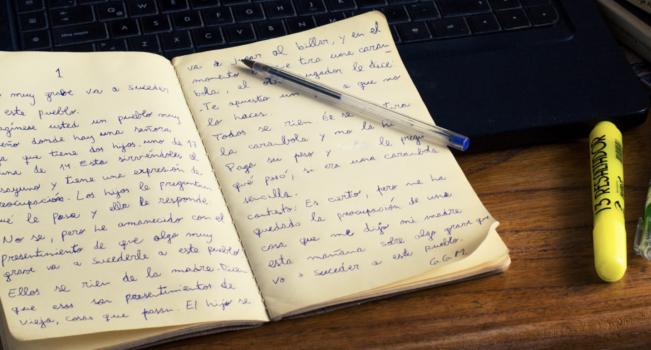 1
muy grave va a suceder
este pueblo.
usted un pueblo muy
donde hay una señora
que tiene dos hijos, uno de 17
una de 14. Esta sirviéndoles el
y tiene una expresión de
Los hijos le preguntan
le pasa y ella le responde:
No se, pero he amanecido con el
presentimiento de que algo muy
grave va a sucederle a este pueblo
Ellos se rien de la madre. Dicen
que esos son presentimientos de
vieja, cosas que pasan. El hijo se
va a jugar al billar, y en el
momento que tira una caram
bola, el jugador le dice:
-Te apuesto un a que no
lo haces.
Todos se rien. El se tira
la carambola y no la
Paga su peso y le pregu
qué pasó, si era una carambola
sencilla.
contesta: Es cierto, pero me ha
quedado la preocupación de una
cosa que me dijo mi madre
esta mañana sobre algo grave que
va a suceder a este pueblo.
G.G.M.
RESALTADOR